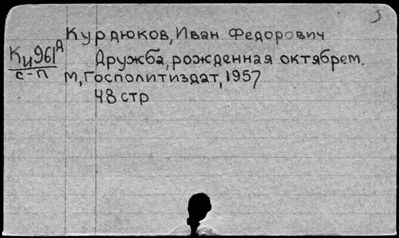 Курдюков, Иван Федорович
Ки961д
с-п
Дружба, рожденная октябрем.
М, Госполитиздат, 1957
48 стр